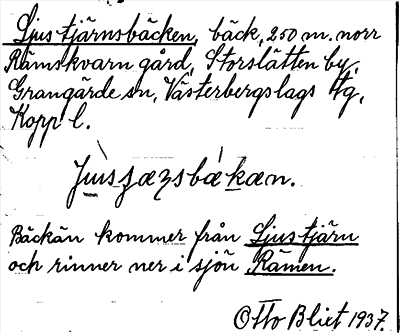 Ljustjärnsbäcken, bäck, 250 m. norr
Rämskvarn gård, Storslätten by,
Grangärde sn, Västerbergslags tg,
Kopp l.
Jusʃæɳsbækæn.
Bäckän kommer från Ljustjärn
och rinner ner i sjön Rämen.
Otto Blixt 1937.